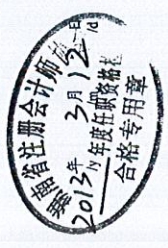 湖南省注册会计师
2013年 3月 12日
/y /d
年度任职资格
合格专用章